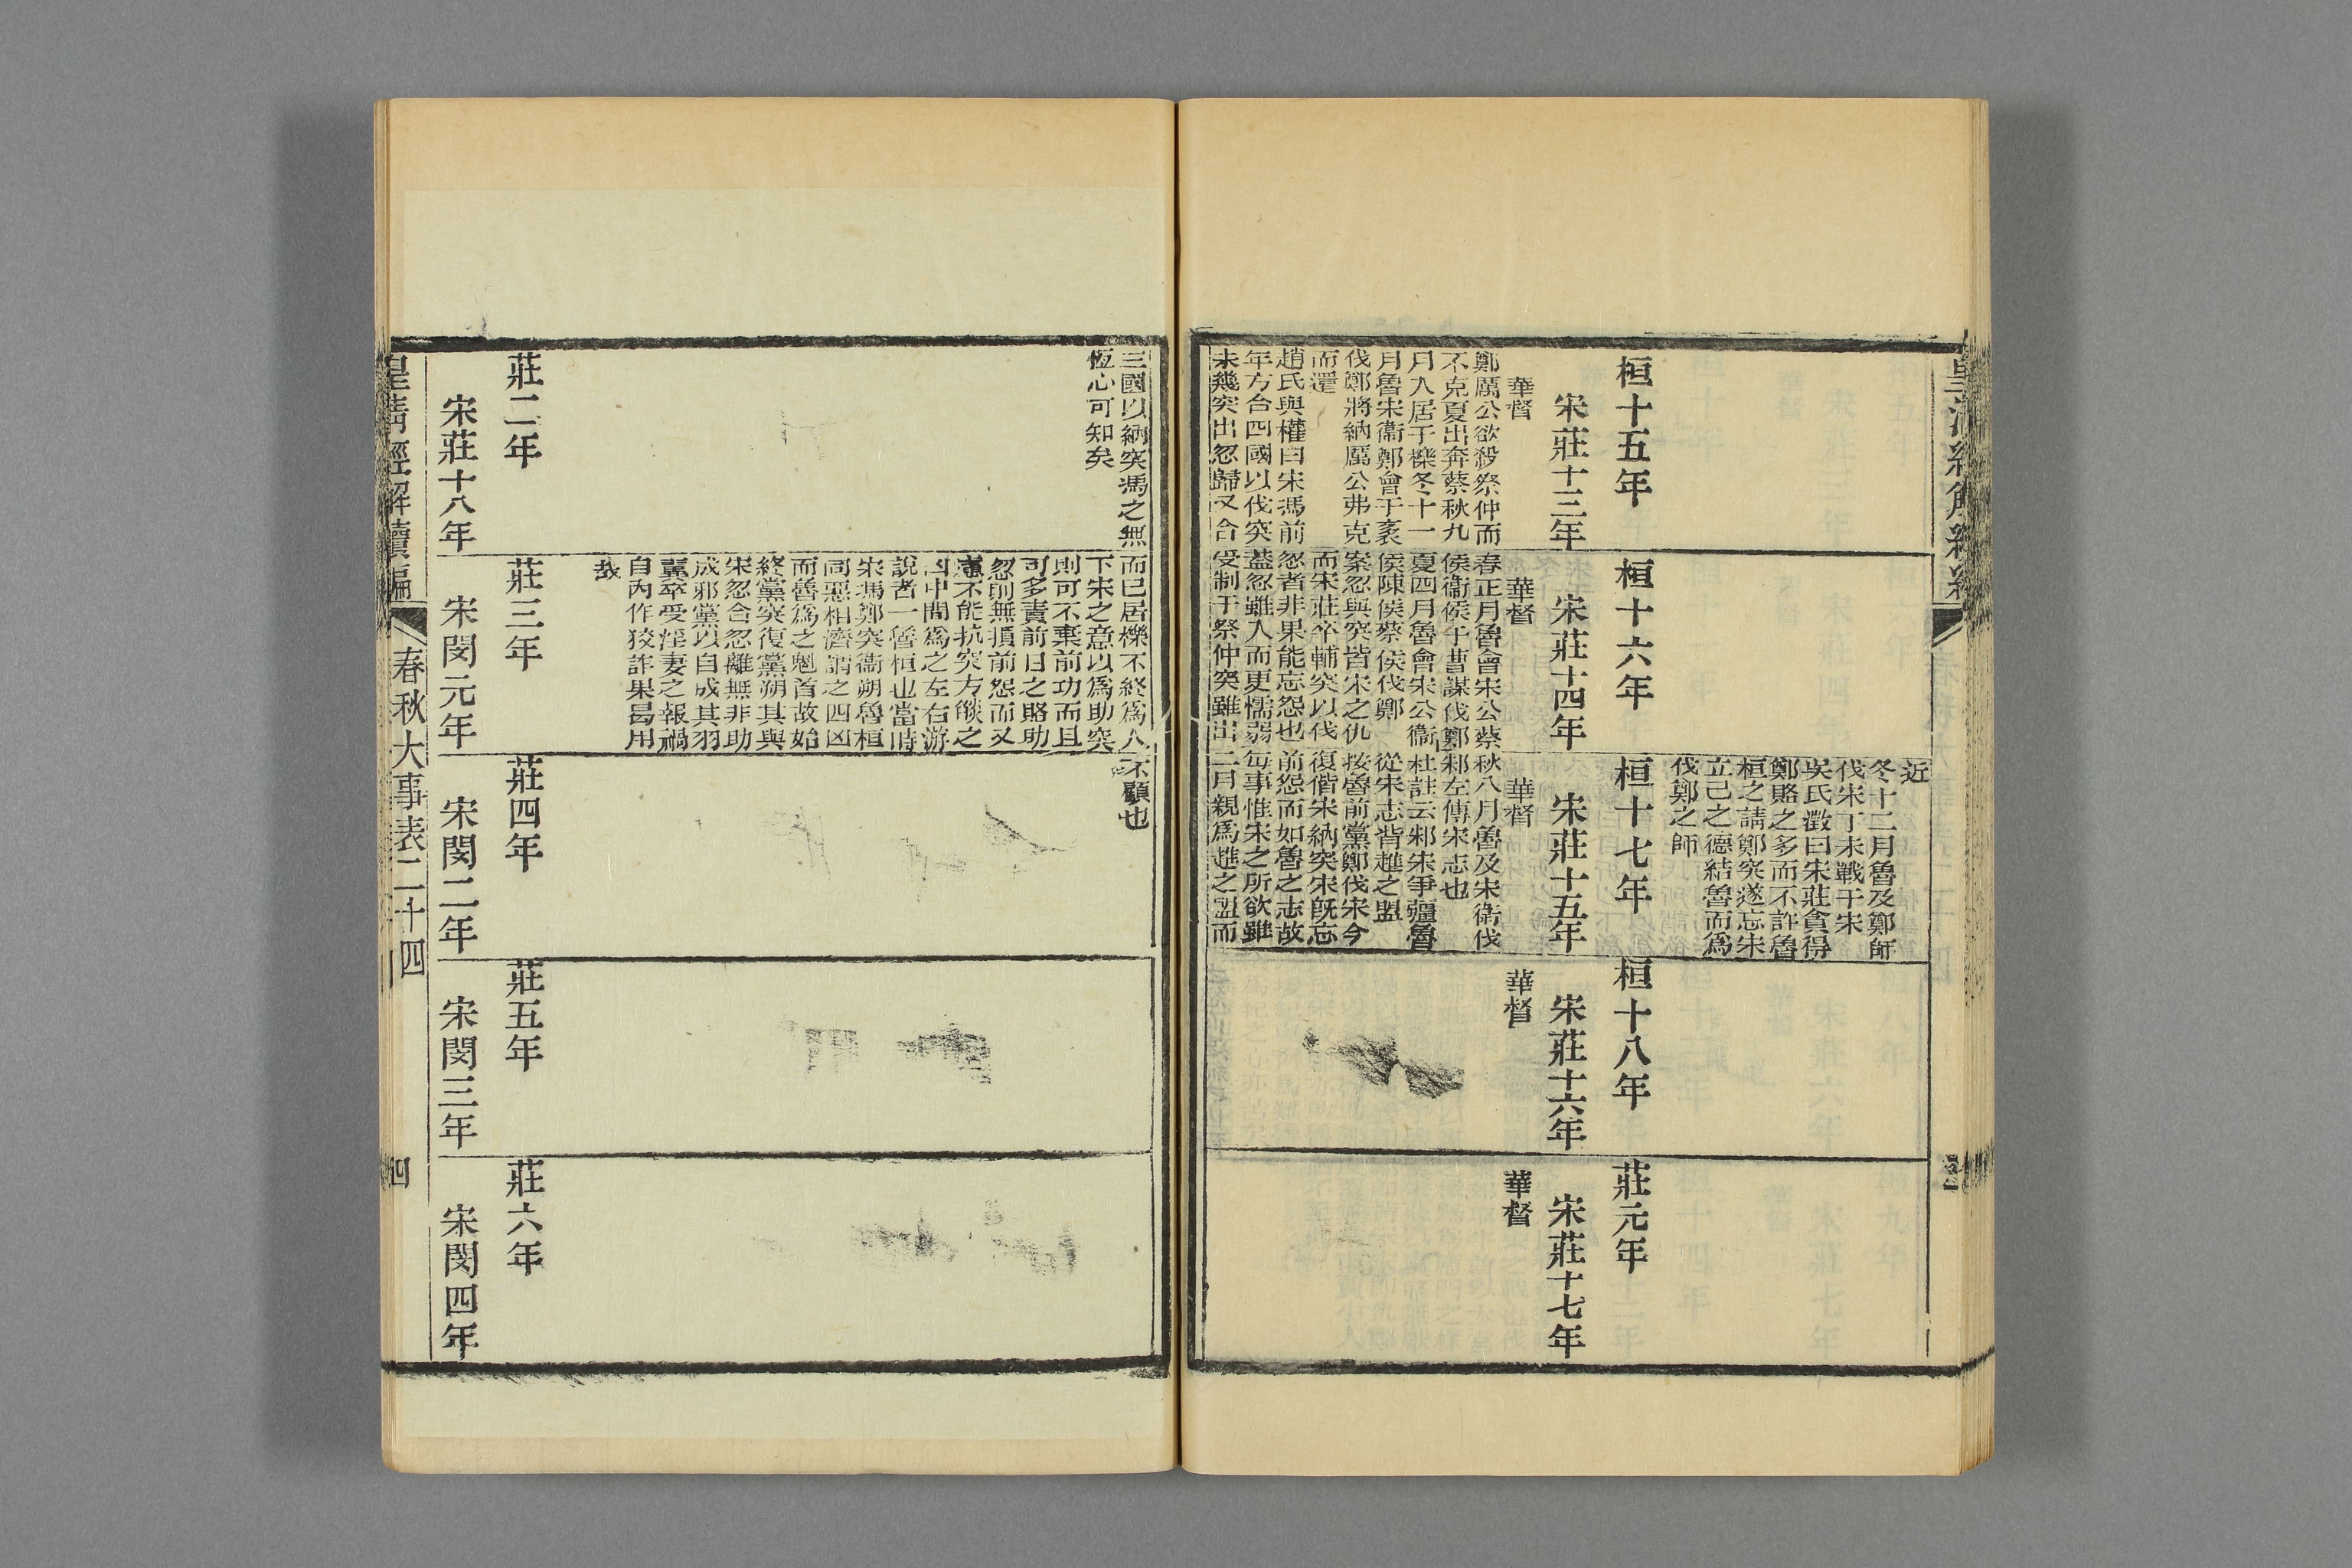 近
冬十二月魯及鄭師
伐宋丁未戰于宋
吳氏澂曰宋莊貪得
鄭賂之多而不許魯
桓之請鄭突遂忘宋
立己之德結魯而爲
伐鄭之師
桓十五年
宋莊十三年
華督
鄭厲公欲殺祭仲而
不克夏出奔蔡秋九
月入居于櫟冬十一
月魯宋衞鄭會于袲
伐鄭將納厲公弗克
而還
趙氏與權曰宋馮前
年方合四國以伐突
未幾突出忽歸又合
桓十六年
宋莊十四年
華督
春正月魯會宋公蔡
侯衞侯于曹謀伐鄭
夏四月魯會宋公衞
侯陳侯蔡侯伐鄭
案忽與突皆宋之仇
而宋莊卒輔突以伐
忽者非果能忘怨也
蓋忽雖入而更懦弱
受制于祭仲突雖出
桓十七年
宋莊十五年
華督
秋八月魯及宋衞伐
邾左傳宋志也
杜註云邾宋爭疆魯
從宋志背趡之盟
按魯前黨鄭伐宋今
復偕宋納突宋旣忘
前怨而如魯之志故
每事惟宋之所欲雖
二月親爲趡之盟而
桓十八年
宋莊十六年
華督
莊元年
宋莊十七年
華督
三國以納突馮之無
恆心可知矣
而已居櫟不終爲人
下宋之意以爲助突
則可不棄前功而且
可多責前日之賂助
忽則無損前怨而又
慮不能抗突方燄之
凶中間爲之左右游
說者一魯桓也當時
宋馮鄭突衞朔魯桓
同惡相濟謂之四凶
而魯爲之魁首故始
終黨突復黨朔其與
宋忽合忽離無非助
成邪黨以自成其羽
翼卒受淫妻之報禍
自內作狡詐果曷用
哉
不顧也
莊二年
宋莊十八年
莊三年
宋閔元年
莊四年
宋閔二年
莊五年
宋閔三年
莊六年
宋閔四年
皇淸經解續編
春秋大事表二十四
四